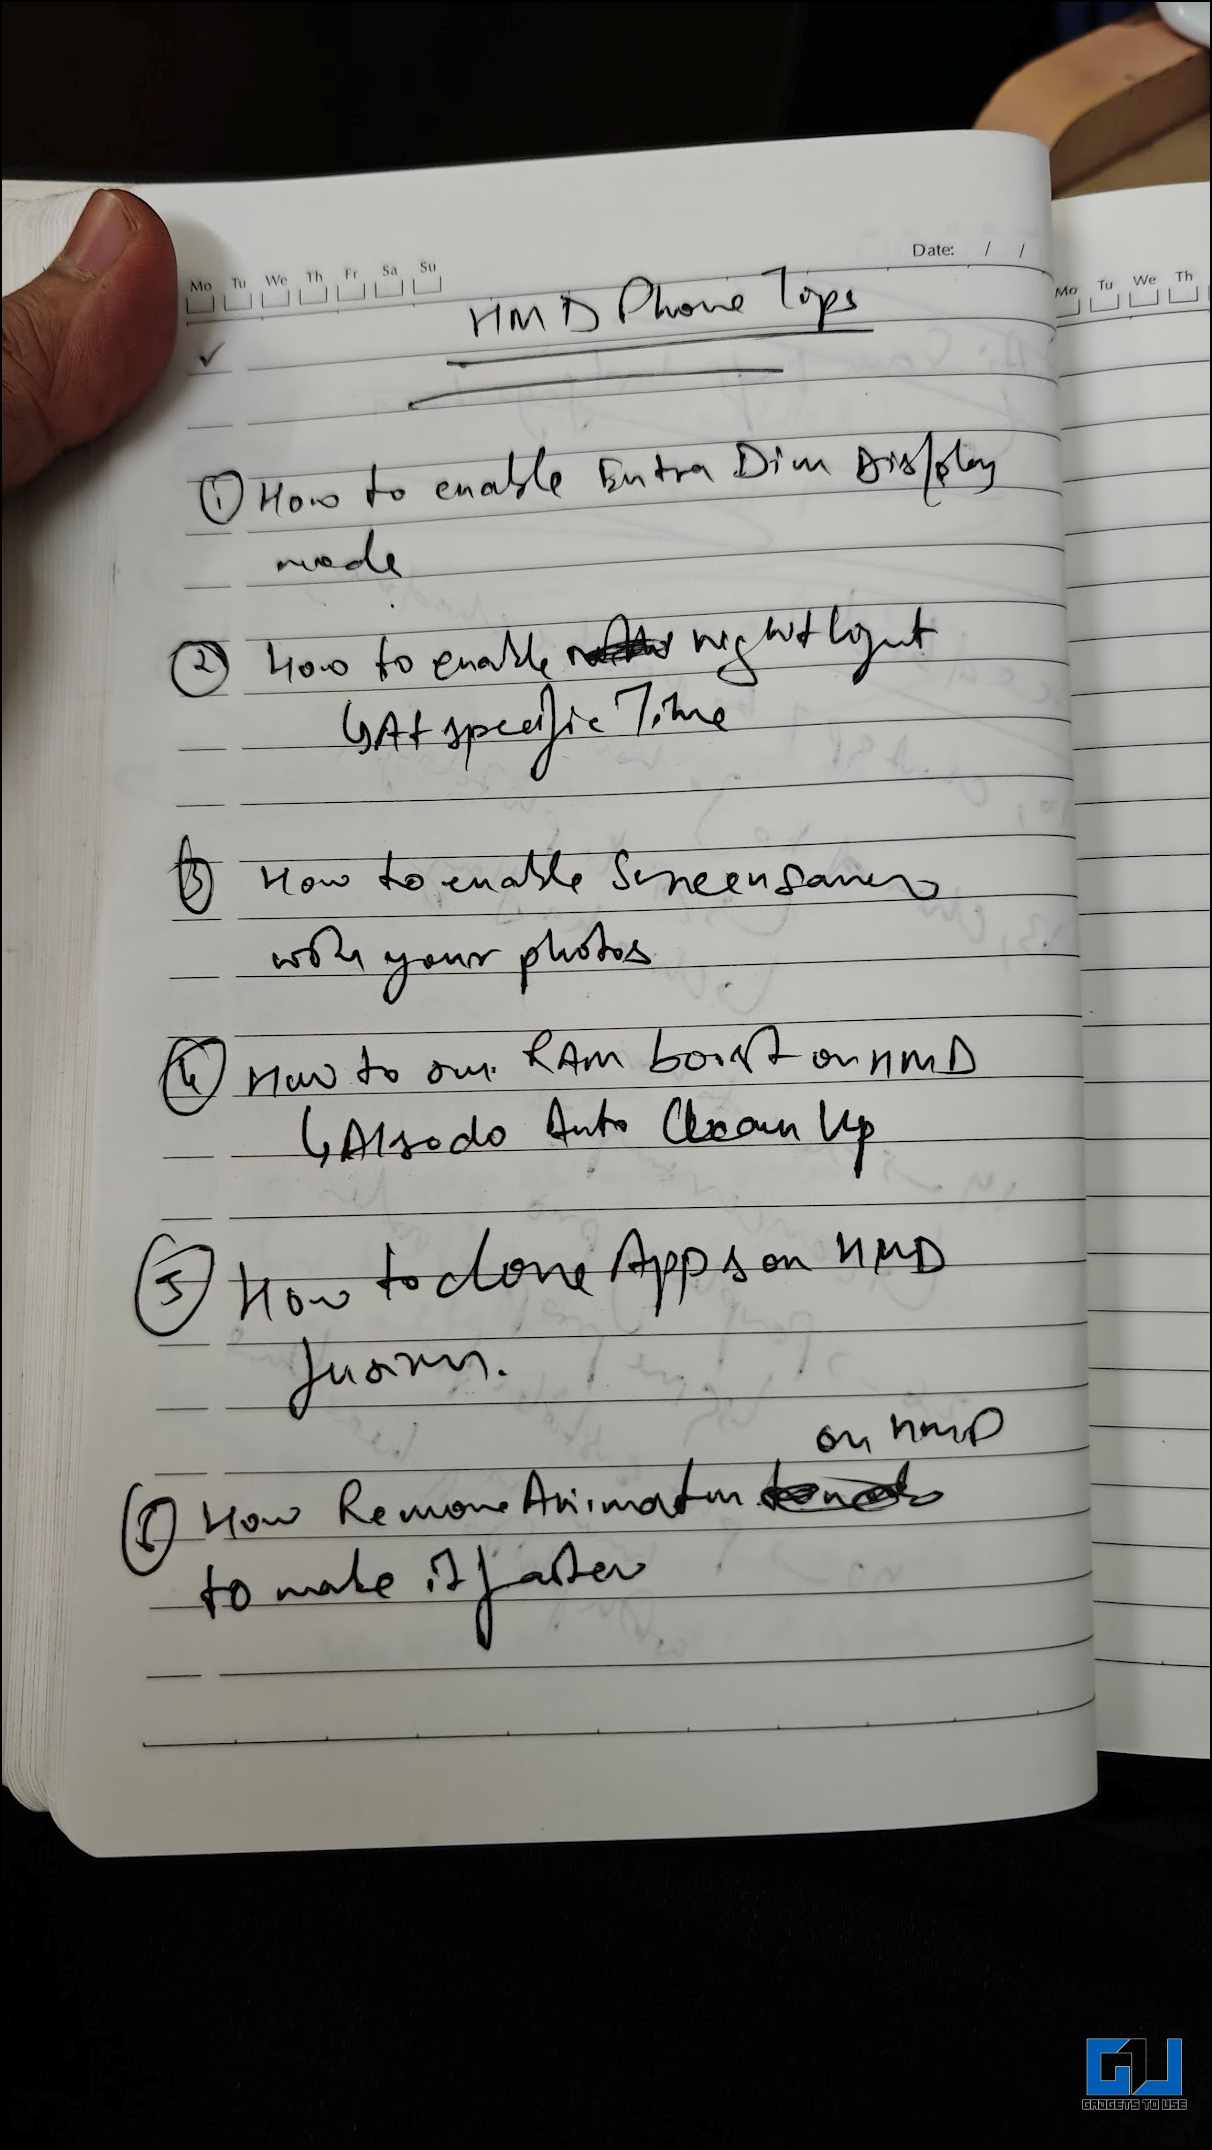 Mo Tu We Th Fr Sa Su
Date: / /
Mo Tu We Th
HMD Phone Tips
① How to enable Extra Dim Display
mode
② How to enable night light
↳ At specific Time
③ How to enable Screensaver
with your photos
④ How to our RAM boost on HMD
↳ Also do Auto Clean Up
⑤ How to clone Apps on HMD
fusion.
on HMD
How Remove Animation
to make it faster
GU
GADGETS TO USE